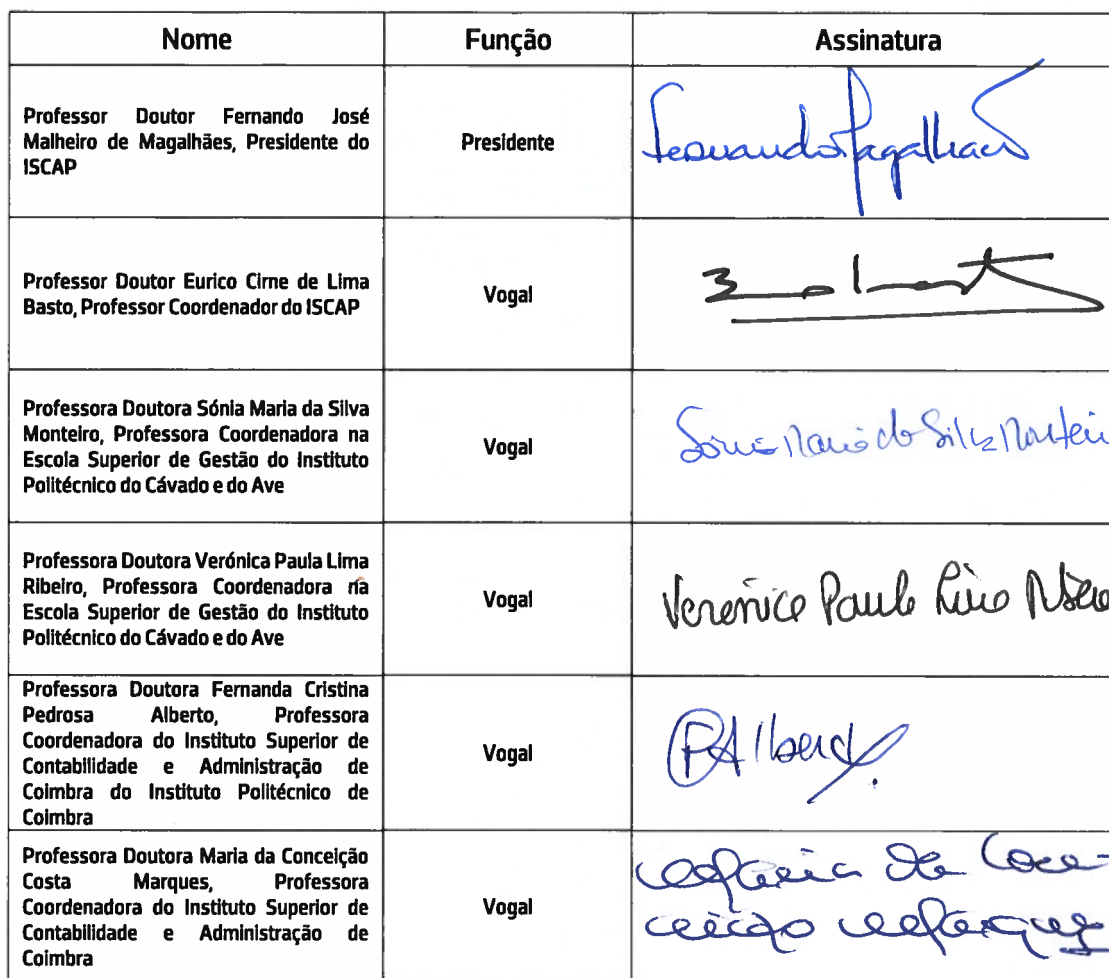 Nome Função Assinatura
Professor Doutor Fernando José
Malheiro de Magalhães, Presidente do
ISCAP
Presidente
Fernando Magalhães
Professor Doutor Eurico Cirne de Lima
Basto, Professor Coordenador do ISCAP
Vogal
Professora Doutora Sónia Maria da Silva
Monteiro, Professora Coordenadora na
Escola Superior de Gestão do Instituto
Politécnico do Cávado e do Ave
Vogal
Sónia Maria da Silva Monteir
Professora Doutora Verónica Paula Lima
Ribeiro, Professora Coordenadora na
Escola Superior de Gestão do Instituto
Politécnico do Cávado e do Ave
Vogal
Verónica Paula Lima
Professora Doutora Fernanda Cristina
Pedrosa Alberto, Professora
Coordenadora do Instituto Superior de
Contabilidade e Administração de
Coimbra do Instituto Politécnico de
Coimbra
Vogal
FAlberto
Professora Doutora Maria da Conceição
Costa Marques, Professora
Coordenadora do Instituto Superior de
Contabilidade e Administração de
Coimbra
Vogal
Maria da Con-
ceição Marques